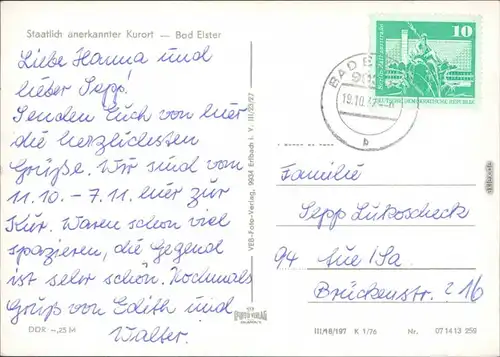 Staatlich anerkannter Kurort — Bad Elster
Liebe Hanna und
lieber Sepp!
Senden Euch von hier
die herzlichsten
Grüße. Wir sind vom
11.10. - 7.11. hier zur
Kur. Waren schon viel
spazieren, die Gegend
ist sehr schön. Nochmals
Gruß von Edith und
Walter.
DDR —,25 M
VEB-Foto-Verlag, 9934 Erlbach i. V. III/22/27
10
DEUTSCHE DEMOKRATISCHE REPUBLIK
BAD
19.10.
b
Familie
Sepp Lukoscheck
94 Aue/Sa.
Brückenstr. 216
III/18/197 K 1/76 Nr. 07 14 13 259